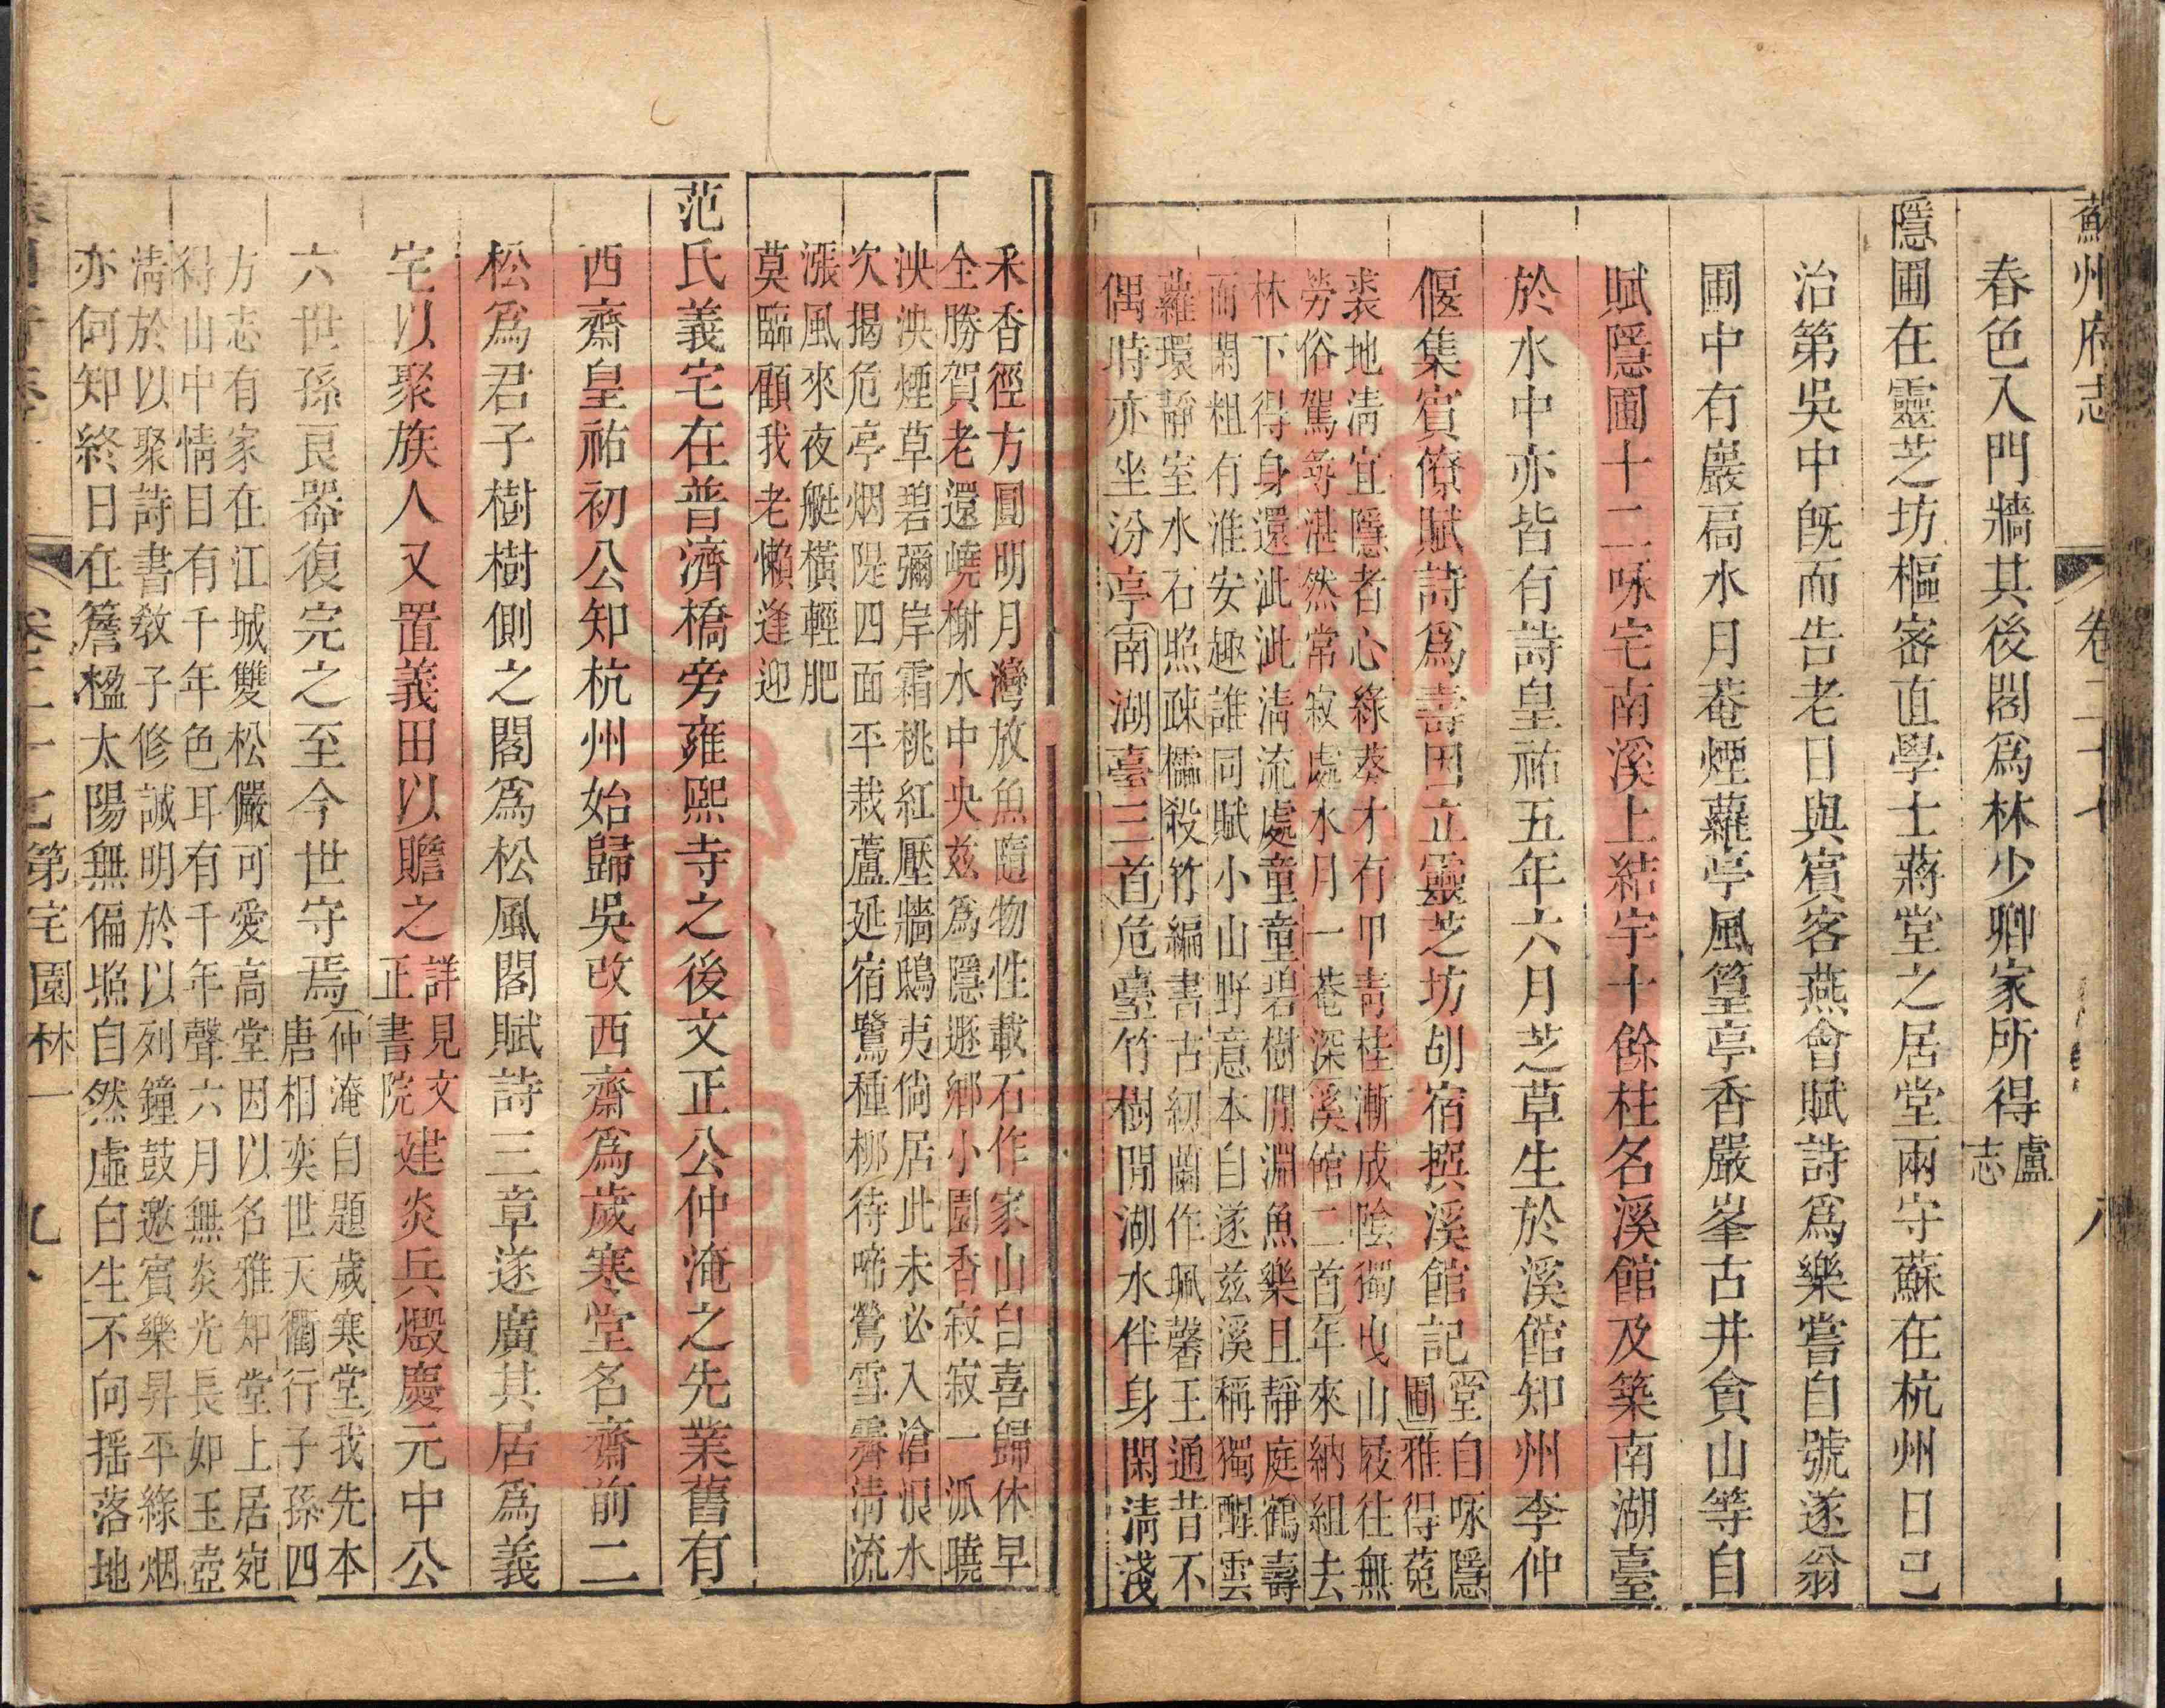 蘇州府志
卷二十七
八
春色入門牆其後閣爲林少卿家所得
盧
志
隱圃在靈芝坊樞密直學士蔣堂之居堂兩守蘇在杭州日已
治第吳中旣而告老日與賓客燕會賦詩爲樂嘗自號遂翁
圃中有巖扃水月菴煙蘿亭風篁亭香嚴峯古井貪山等自
賦隱圃十二咏宅南溪上結宇十餘柱名溪館及築南湖臺
於水中亦皆有詩皇祐五年六月芝草生於溪館知州李仲
偃集賓僚賦詩爲壽因立靈芝坊胡宿撰溪館記
堂自咏隱
圃雅得菟
裘地淸宜隱者心綠葵才有甲靑桂漸成陰獨曳山屐往無
勞俗駕尋湛然常寂處水月一菴深溪館二首年來納組去
林下得身還泚泚淸流處童童碧樹閒淵魚樂且靜庭鶴壽
而閑粗有淮安趣誰同賦小山野意本自遂兹溪稱獨醒雲
蘿環靜室水石照疎櫺殺竹編書古紉蘭作珮馨王通昔不
偶時亦坐汾亭南湖臺三首危臺竹樹閒湖水伴身閑淸淺
采香徑方圓明月灣放魚隨物性載石作家山自喜歸休早
全勝賀老還嶢榭水中央兹爲隱遯鄕小園香寂寂一派曉
泱泱煙草碧彌岸霜桃紅壓牆鴟夷倘居此未必入滄浪水
次揭危亭烟隄四面平栽蘆延宿鷺種柳待啼鶯雪霽淸流
漲風來夜艇橫輕肥
莫臨顧我老懶逢迎
范氏義宅在普濟橋旁雍熙寺之後文正公仲淹之先業舊有
西齋皇祐初公知杭州始歸吳改西齋爲歲寒堂名齋前二
松爲君子樹樹側之閣爲松風閣賦詩三章遂廣其居爲義
宅以聚族人又置義田以贍之
詳見文
正書院
建炎兵燬慶元中公
六世孫良器復完之至今世守焉
仲淹自題歲寒堂我先本
唐相奕世天衢行子孫四
方志有家在江城雙松儼可愛高堂因以名雅知堂上居宛
得山中情目有千年色耳有千年聲六月無炎光長如玉壺
淸於以聚詩書敎子修誠明於以列鐘鼓邀賓樂昇平綠烟
亦何知終日在簷楹太陽無偏照自然虛白生不向揺落地
卷二十七第宅園林一
九